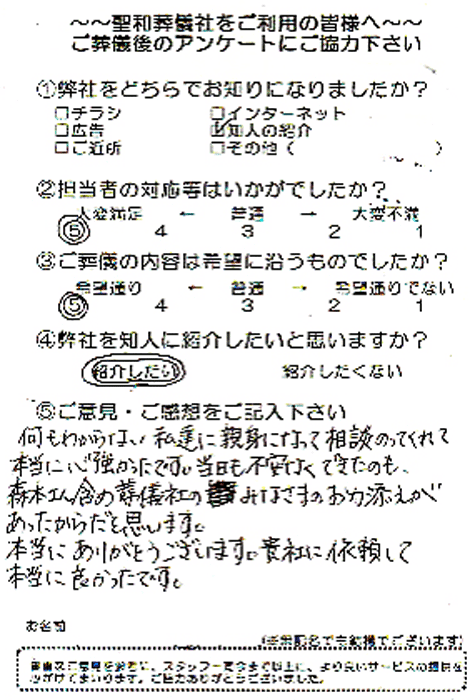 ～～聖和葬儀社をご利用の皆様へ～～
ご葬儀後のアンケートにご協力下さい
①弊社をどちらでお知りになりましたか？
□チラシ □インターネット
□広告 ☑知人の紹介
□ご近所 □その他（ ）
②担当者の対応等はいかがでしたか？
大変満足 ← 普通 → 大変不満
5 4 3 2 1
③ご葬儀の内容は希望に沿うものでしたか？
希望通り ← 普通 → 希望通りでない
5 4 3 2 1
④弊社を知人に紹介したいと思いますか？
紹介したい 紹介したくない
⑤ご意見・ご感想をご記入下さい
何もわからない私達に親身になって相談のってくれて
本当に心強かったです。当日も不安なくできたのも、
森本さん含め葬儀社の みなさまのお力添えが
あったからだと思います。
本当にありがとうございます。貴社に依頼して
本当に良かったです。
お名前
(※無記名でも結構でございます)
貴重なご意見を参考に、スタッフ一同今まで以上に、より良いサービスの提供を
心がけてまいります。ご協力ありがとうございました。